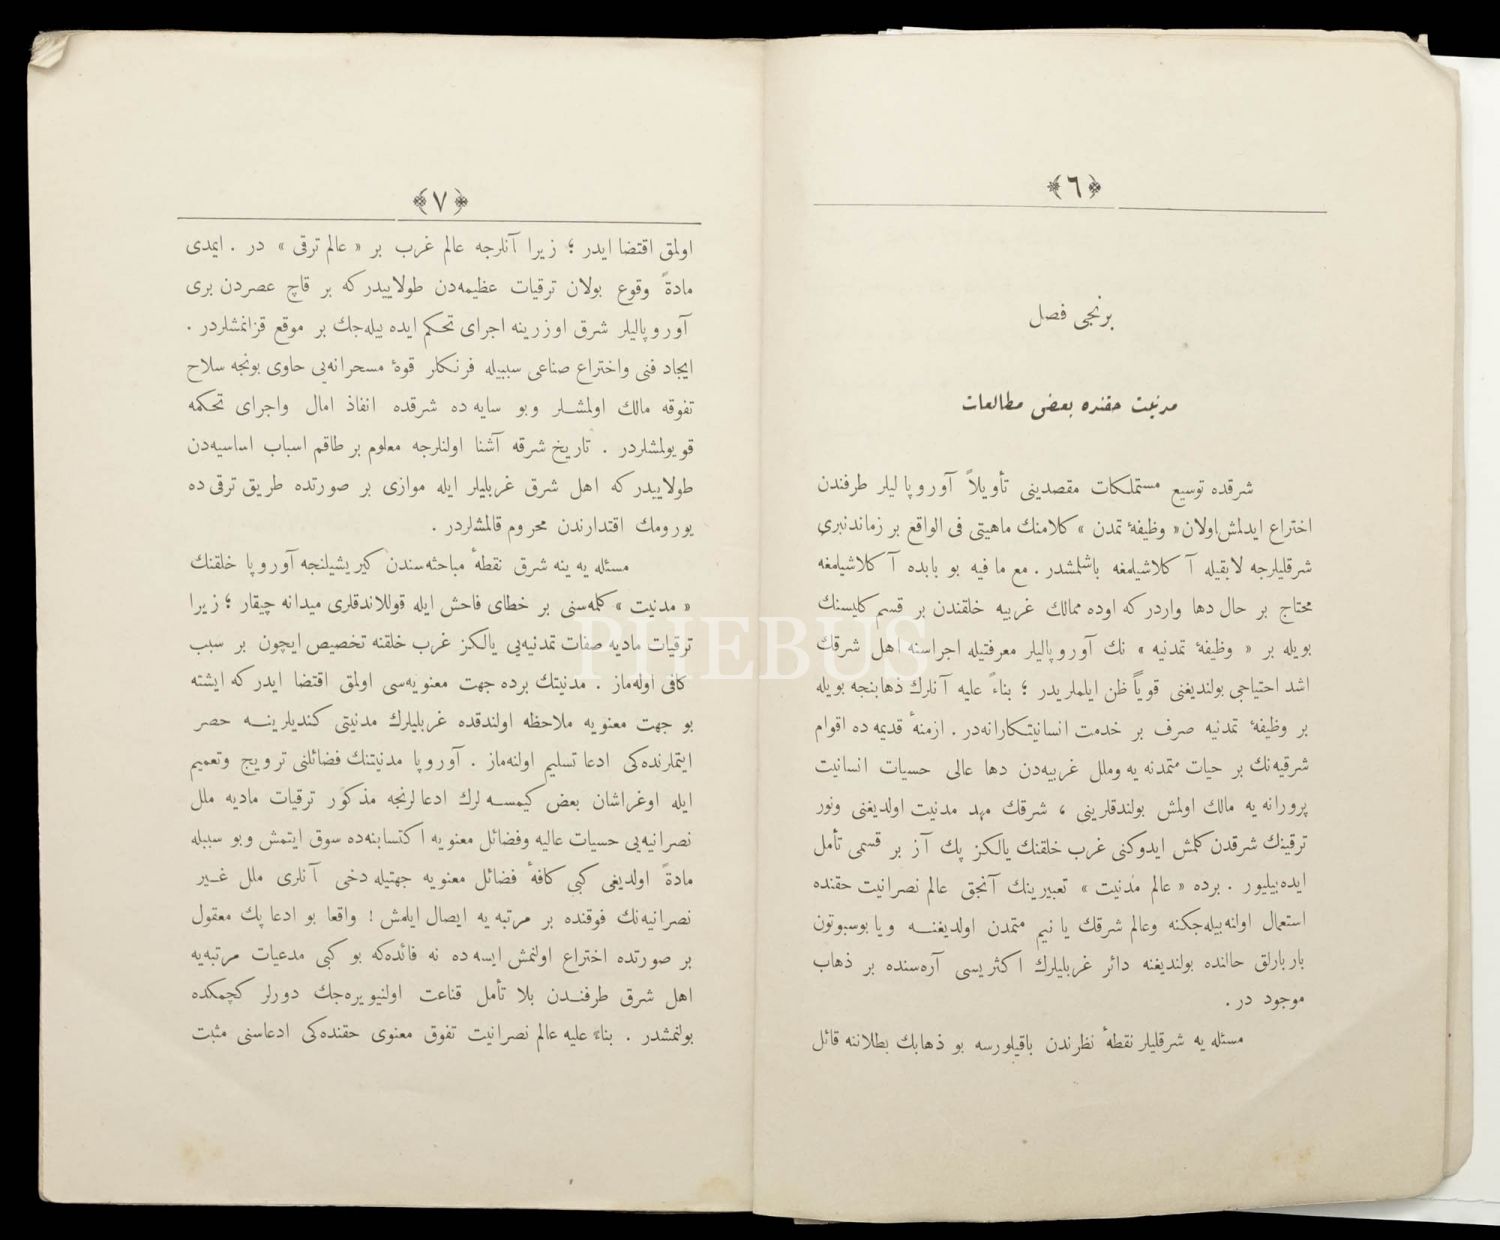 ﴿٦﴾
برنجى فصل
مدنيت حقنده بعض مطالعات
شرقده توسيع مستملكات مقصدينى تأويلاً آوروپا ليلر طرفندن
اختراع ايدلمش اولان « وظيفهٔ تمدن » كلامنك ماهيتى فى الواقع بر زماندنبرى
شرقليلرجه لايقيله آ كلاشيلمغه باشلمشدر . مع ما فيه بو بابده آ كلاشيلمغه
محتاج بر حال دها واردر كه اوده ممالك غربيه خلقندن بر قسم كليسنك
بويله بر « وظيفهٔ تمدنيه » نك آوروپاليلر معرفتيله اجراسنه اهل شرقك
اشد احتياجى بولنديغنى قوياً ظن ايلملريدر ؛ بناءً عليه آنلرك ذهابنجه بويله
بر وظيفهٔ تمدنيه صرف بر خدمت انسانيتكارانه‌در . ازمنهٔ قديمه ده اقوام
شرقيه‌نك بر حيات متمدنه يه وملل غربيه‌دن دها عالى حسيات انسانيت
پرورانه يه مالك اولمش بولندقلرينى ، شرقك مهد مدنيت اولديغنى ونور
ترقينك شرقدن كلمش ايدوكنى غرب خلقنك يالكز پك آز بر قسمى تأمل
ايده‌بيليور . برده « عالم مدنيت » تعبيرينك آنجق عالم نصرانيت حقنده
استعمال اولنه‌بيله‌جكنه وعالم شرقك يا نيم متمدن اولديغنه و يا بوسبوتون
باربارلق حالنده بولنديغنه دائر غربليلرك اكثريسى آره‌سنده بر ذهاب
موجود در .
مسئله يه شرقليلر نقطهٔ نظرندن باقيلورسه بو ذهابك بطلاننه قائل
﴿٧﴾
اولمق اقتضا ايدر ؛ زيرا آنلرجه عالم غرب بر « عالم ترقى » در . ايمدى
مادةً وقوع بولان ترقيات عظيمه‌دن طولاييدر كه بر قاچ عصردن برى
آوروپاليلر شرق اوزرينه اجراى تحكم ايده بيله‌جك بر موقع قزانمشلردر .
ايجاد فنى واختراع صناعى سببيله فرنكلر قوهٔ مسحرانه‌يى حاوى بونجه سلاح
تفوقه مالك اولمشلر وبو سايه ده شرقده انفاذ امال واجراى تحكمه
قويولمشلردر . تاريخ شرقه آشنا اولنلرجه معلوم بر طاقم اسباب اساسيه‌دن
طولاييدر كه اهل شرق غربليلر ايله موازى بر صورتده طريق ترقى ده
يورومك اقتدارندن محروم قالمشلردر .
مسئله يه ينه شرق نقطهٔ مباحثه‌سندن كيريشيلنجه آوروپا خلقنك
« مدنيت » كلمه‌سنى بر خطاى فاحش ايله قوللاندقلرى ميدانه چيقار ؛ زيرا
ترقيات ماديه صفات تمدنيه‌يى يالكز غرب خلقنه تخصيص ايچون بر سبب
كافى اوله‌ماز . مدنيتك برده جهت معنويه‌سى اولمق اقتضا ايدر كه ايشته
بو جهت معنويه ملاحظه اولندقده غربليلرك مدنيتى كنديلرينه حصر
ايتملرنده‌كى ادعا تسليم اولنه‌ماز . آوروپا مدنيتنك فضائلنى ترويج وتعميم
ايله اوغراشان بعض كيمسه لرك ادعالرنجه مذكور ترقيات ماديه ملل
نصرانيه‌يى حسيات عاليه وفضائل معنويه اكتسابنه‌ده سوق ايتمش وبو سببله
مادةً اولديغى كبى كافهٔ فضائل معنويه جهتيله دخى آنلرى ملل غير
نصرانيه‌نك فوقنده بر مرتبه يه ايصال ايلمش ! واقعا بو ادعا پك معقول
بر صورتده اختراع اولنمش ايسه ده نه فائده‌كه بو كبى مدعيات مرتبه‌يه
اهل شرق طرفندن بلا تأمل قناعت اولنيويره‌جك دورلر كچمكده
بولنمشدر . بناءً عليه عالم نصرانيت تفوق معنوى حقنده‌كى ادعاسنى مثبت
PHEBUS